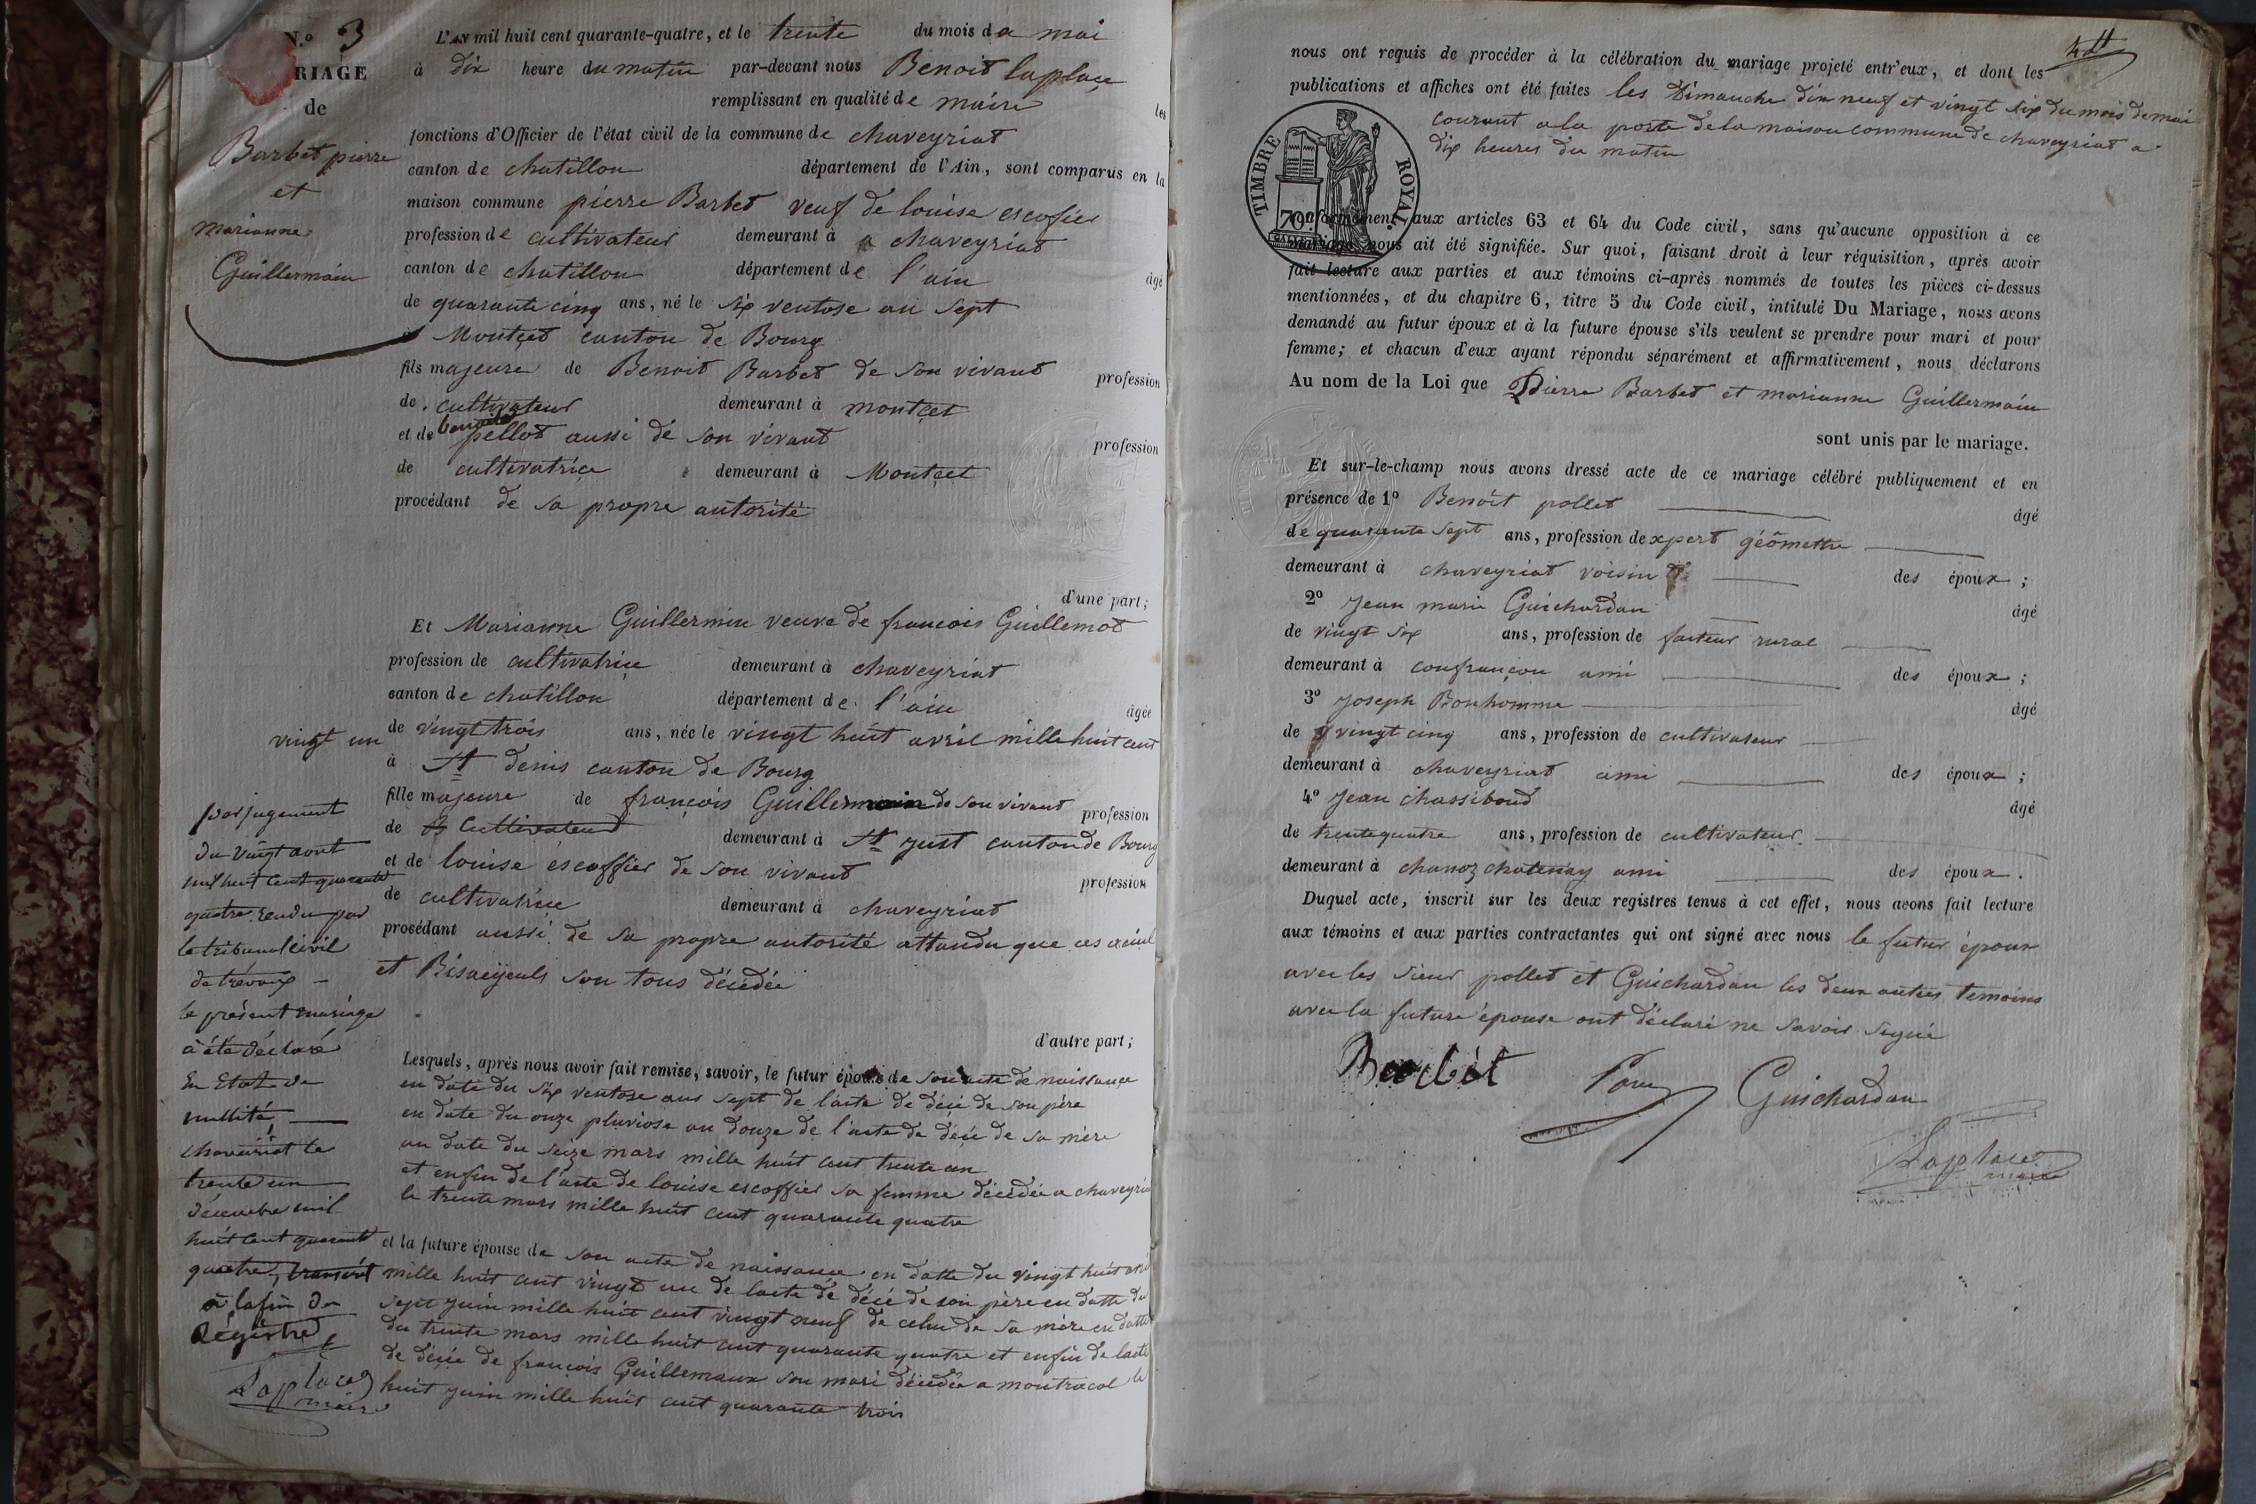 N.º 3
RIAGE
de
Barbet pierre
et
marianne
Guillermain
L'AN mil huit cent quarante-quatre, et le trente du mois de mai
à dix heure du matin par-devant nous Benoit laplace
remplissant en qualité de maire les
fonctions d'Officier de l'état civil de la commune de chaveyriat
canton de chatillon département de l'Ain, sont comparus en la
maison commune pierre Barbet veuf de louise escofier
profession de cultivateur demeurant à a chaveyriat
canton de chatillon département de l'ain âgé
de quarante cinq ans, né le six ventose an sept
a Montcet canton de Bourg
fils majeure de Benoit Barbet de son vivant profession
de cultivateur demeurant à montcet
et de benoite pellot aussi de son vivant profession
de cultivatrice demeurant à Montcet
procédant de sa propre autorité
d'une part;
Et Marianne Guillermin veuve de francois Guillemot
profession de cultivatrice demeurant à chaveyriat
canton de chatillon département de l'ain âgée
de vingt trois ans, née le vingt huit avril mille huit cent
vingt un
à St denis canton de Bourg
fille majeure de françois Guillermain de son vivant profession
de cultivateur demeurant à St just canton de Bourg
et de louise escoffier de son vivant profession
de cultivatrice demeurant à chaveyriat
procédant aussi de sa propre autorité attandu que ces aieul
et Bisaeyeuls son tous décédée
d'autre part;
Lesquels, après nous avoir fait remise, savoir, le futur époux de son acte de naissance
en date du six ventose ans sept de l'acte de décé de son père
en date du onze pluviose an douze de l'acte de décé de sa mère
en date du seize mars mille huit cent trente un
et enfin de l'acte de louise escoffier sa femme décédée a chaveyria
le trente mars mille huit cent quarante quatre
et la future épouse de son acte de naissance en datte du vingt huit avril
mille huit cent vingt un de lacte de décé de son père en datte du
sept juin mille huit cent vingt neuf de celui de sa mère en datte
du trente mars mille huit cent quarante quatre et enfin de lacte
de décée de françois Guillemaux son mari décédée a montracol le
huit juin mille huit cent quarante trois
par jugement
du vingt aout
mil huit cent quarante
quatre rendu par
le tribunal civil
de trévoux
le présent mariage
à été déclaré
En Etat de
nullité,
chavériat le
trente un
décembre mil
huit cent quarante
quatre, transcrit
à la fin du
Régistre
Laplace
maire
nous ont requis de procéder à la célébration du mariage projeté entr'eux, et dont les
publications et affiches ont été faites les Dimanche dix neuf et vingt six du mois de mai
courant a la porte de la maison commune de chaveyriat a
dix heures du matin
TIMBRE ROYAL
70
conformément aux articles 63 et 64 du Code civil, sans qu'aucune opposition à ce
mariage nous ait été signifiée. Sur quoi, faisant droit à leur réquisition, après avoir
fait lecture aux parties et aux témoins ci-après nommés de toutes les pièces ci-dessus
mentionnées, et du chapitre 6, titre 5 du Code civil, intitulé Du Mariage, nous avons
demandé au futur époux et à la future épouse s'ils veulent se prendre pour mari et pour
femme; et chacun d'eux ayant répondu séparément et affirmativement, nous déclarons
Au nom de la Loi que Pierre Barbet et marianne Guillermain
sont unis par le mariage.
Et sur-le-champ nous avons dressé acte de ce mariage célébré publiquement et en
présence de 1º Benoit pollet âgé
de quarante sept ans, profession dexpert géômettre
demeurant à chaveyriat voisin des époux;
2º Jean marie Guichardan âgé
de vingt six ans, profession de facteur rural
demeurant à confrançon ami des époux;
3º Joseph Bonhomme âgé
de vingt cinq ans, profession de cultivateur
demeurant à chaveyriat ami des époux;
4º Jean chassiboud âgé
de trente quatre ans, profession de cultivateur
demeurant à chanoz chatenay ami des époux.
Duquel acte, inscrit sur les deux registres tenus à cet effet, nous avons fait lecture
aux témoins et aux parties contractantes qui ont signé avec nous le futur époux
avec les sieur pollet et Guichardan les deux autres temoins
avec la future épouse ont déclaré ne savoir signé
Barbet Guichardan
Laplace
maire